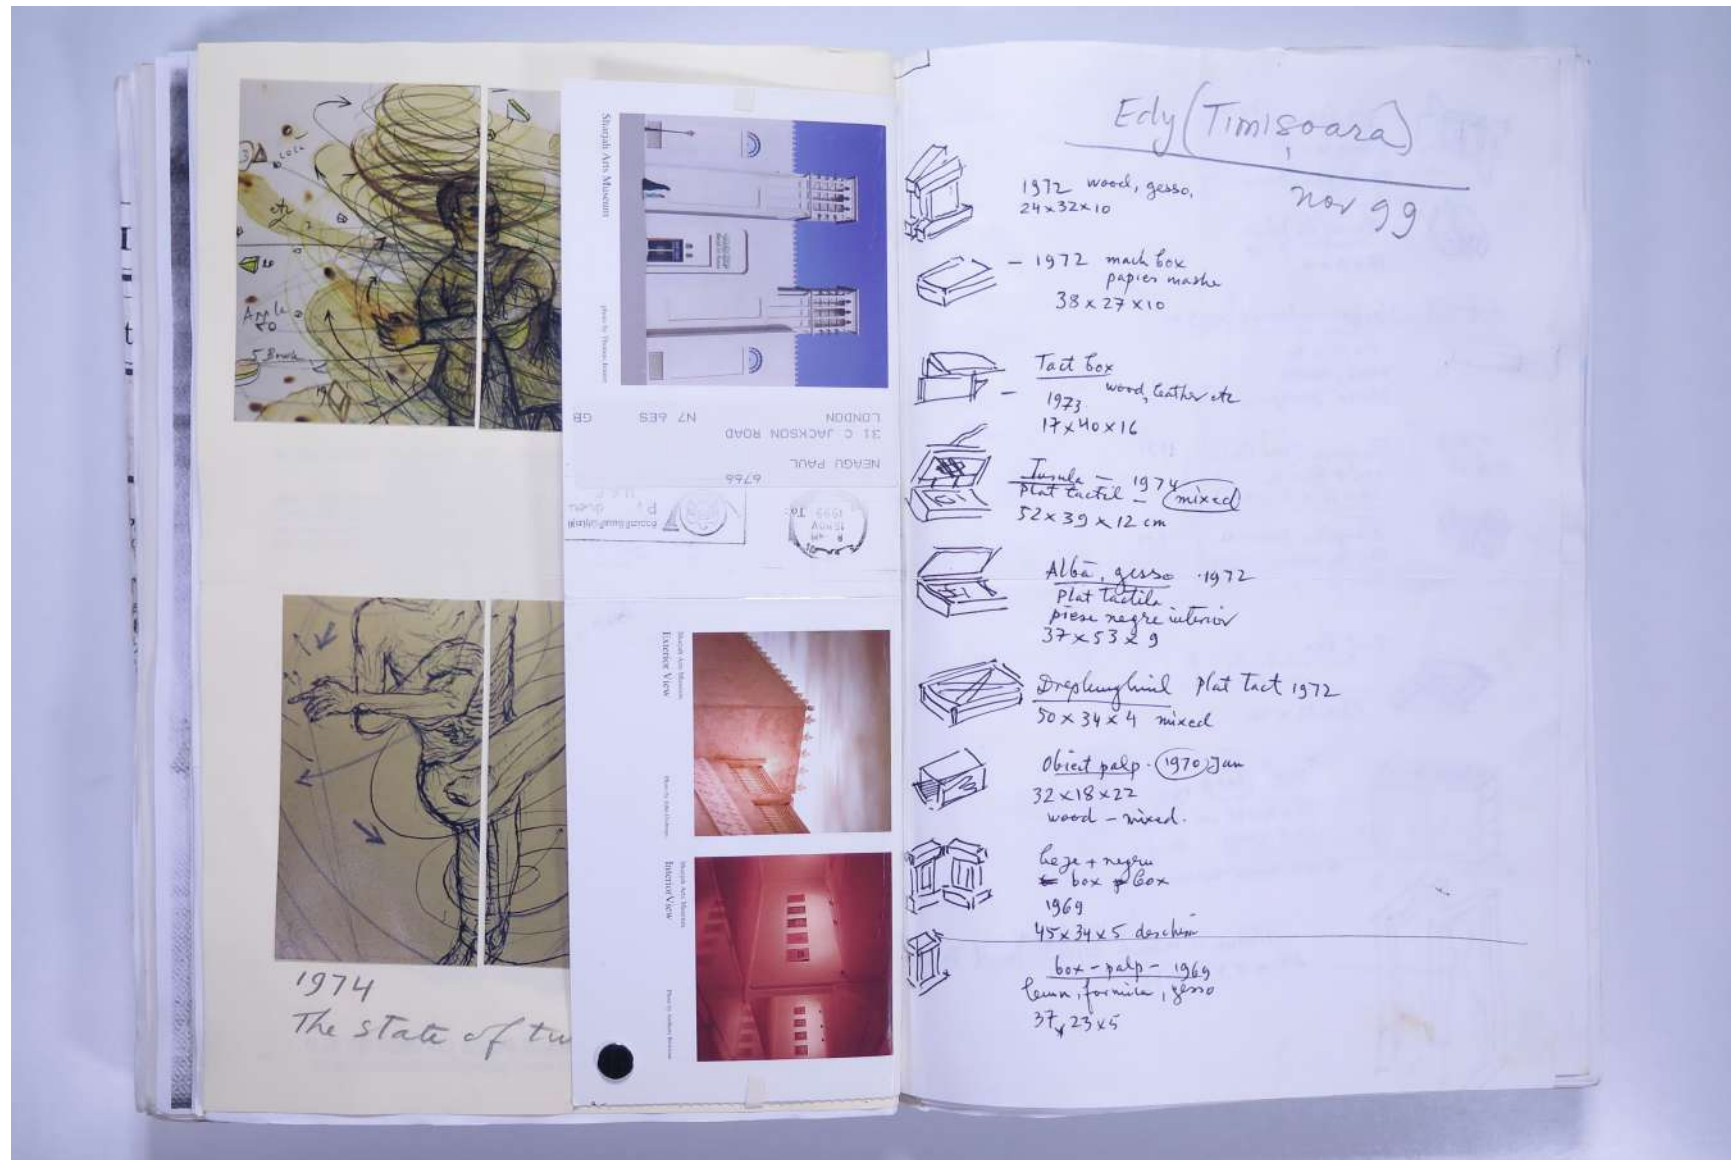 3
cola
etc
Apple
50
5 Bowl
1974
The state of tu
Sharjah Arts Museum
GB
N7 6ES
LONDON
31 C JACKSON ROAD
NEAGU PAUL
6766
1999
15 NOV
Sharjah Arts Museum
Exterior View
Sharjah Arts Museum
Interior View
Edy (Timișoara)
nov 99
1972 wood, gesso,
24x32x10
- 1972 mach box
papier mashe
38 x 27 x 10
Tact box
- wood, leather etc
1973
17x40x16
Insula - 1974
Plat tactil - mixed
52 x 39 x 12 cm
Albă, gesso 1972
Plat tactila
piese negre interior
37 x 53 x 9
Plat Tact 1972
50 x 34 x 4 mixed
Obiect palp. 1970 Jan
32 x18 x22
wood - mixed.
beje + negru
box box
1969
45x34x5 deschis
box - palp - 1969
lemn, formica, gesso
37x23x5